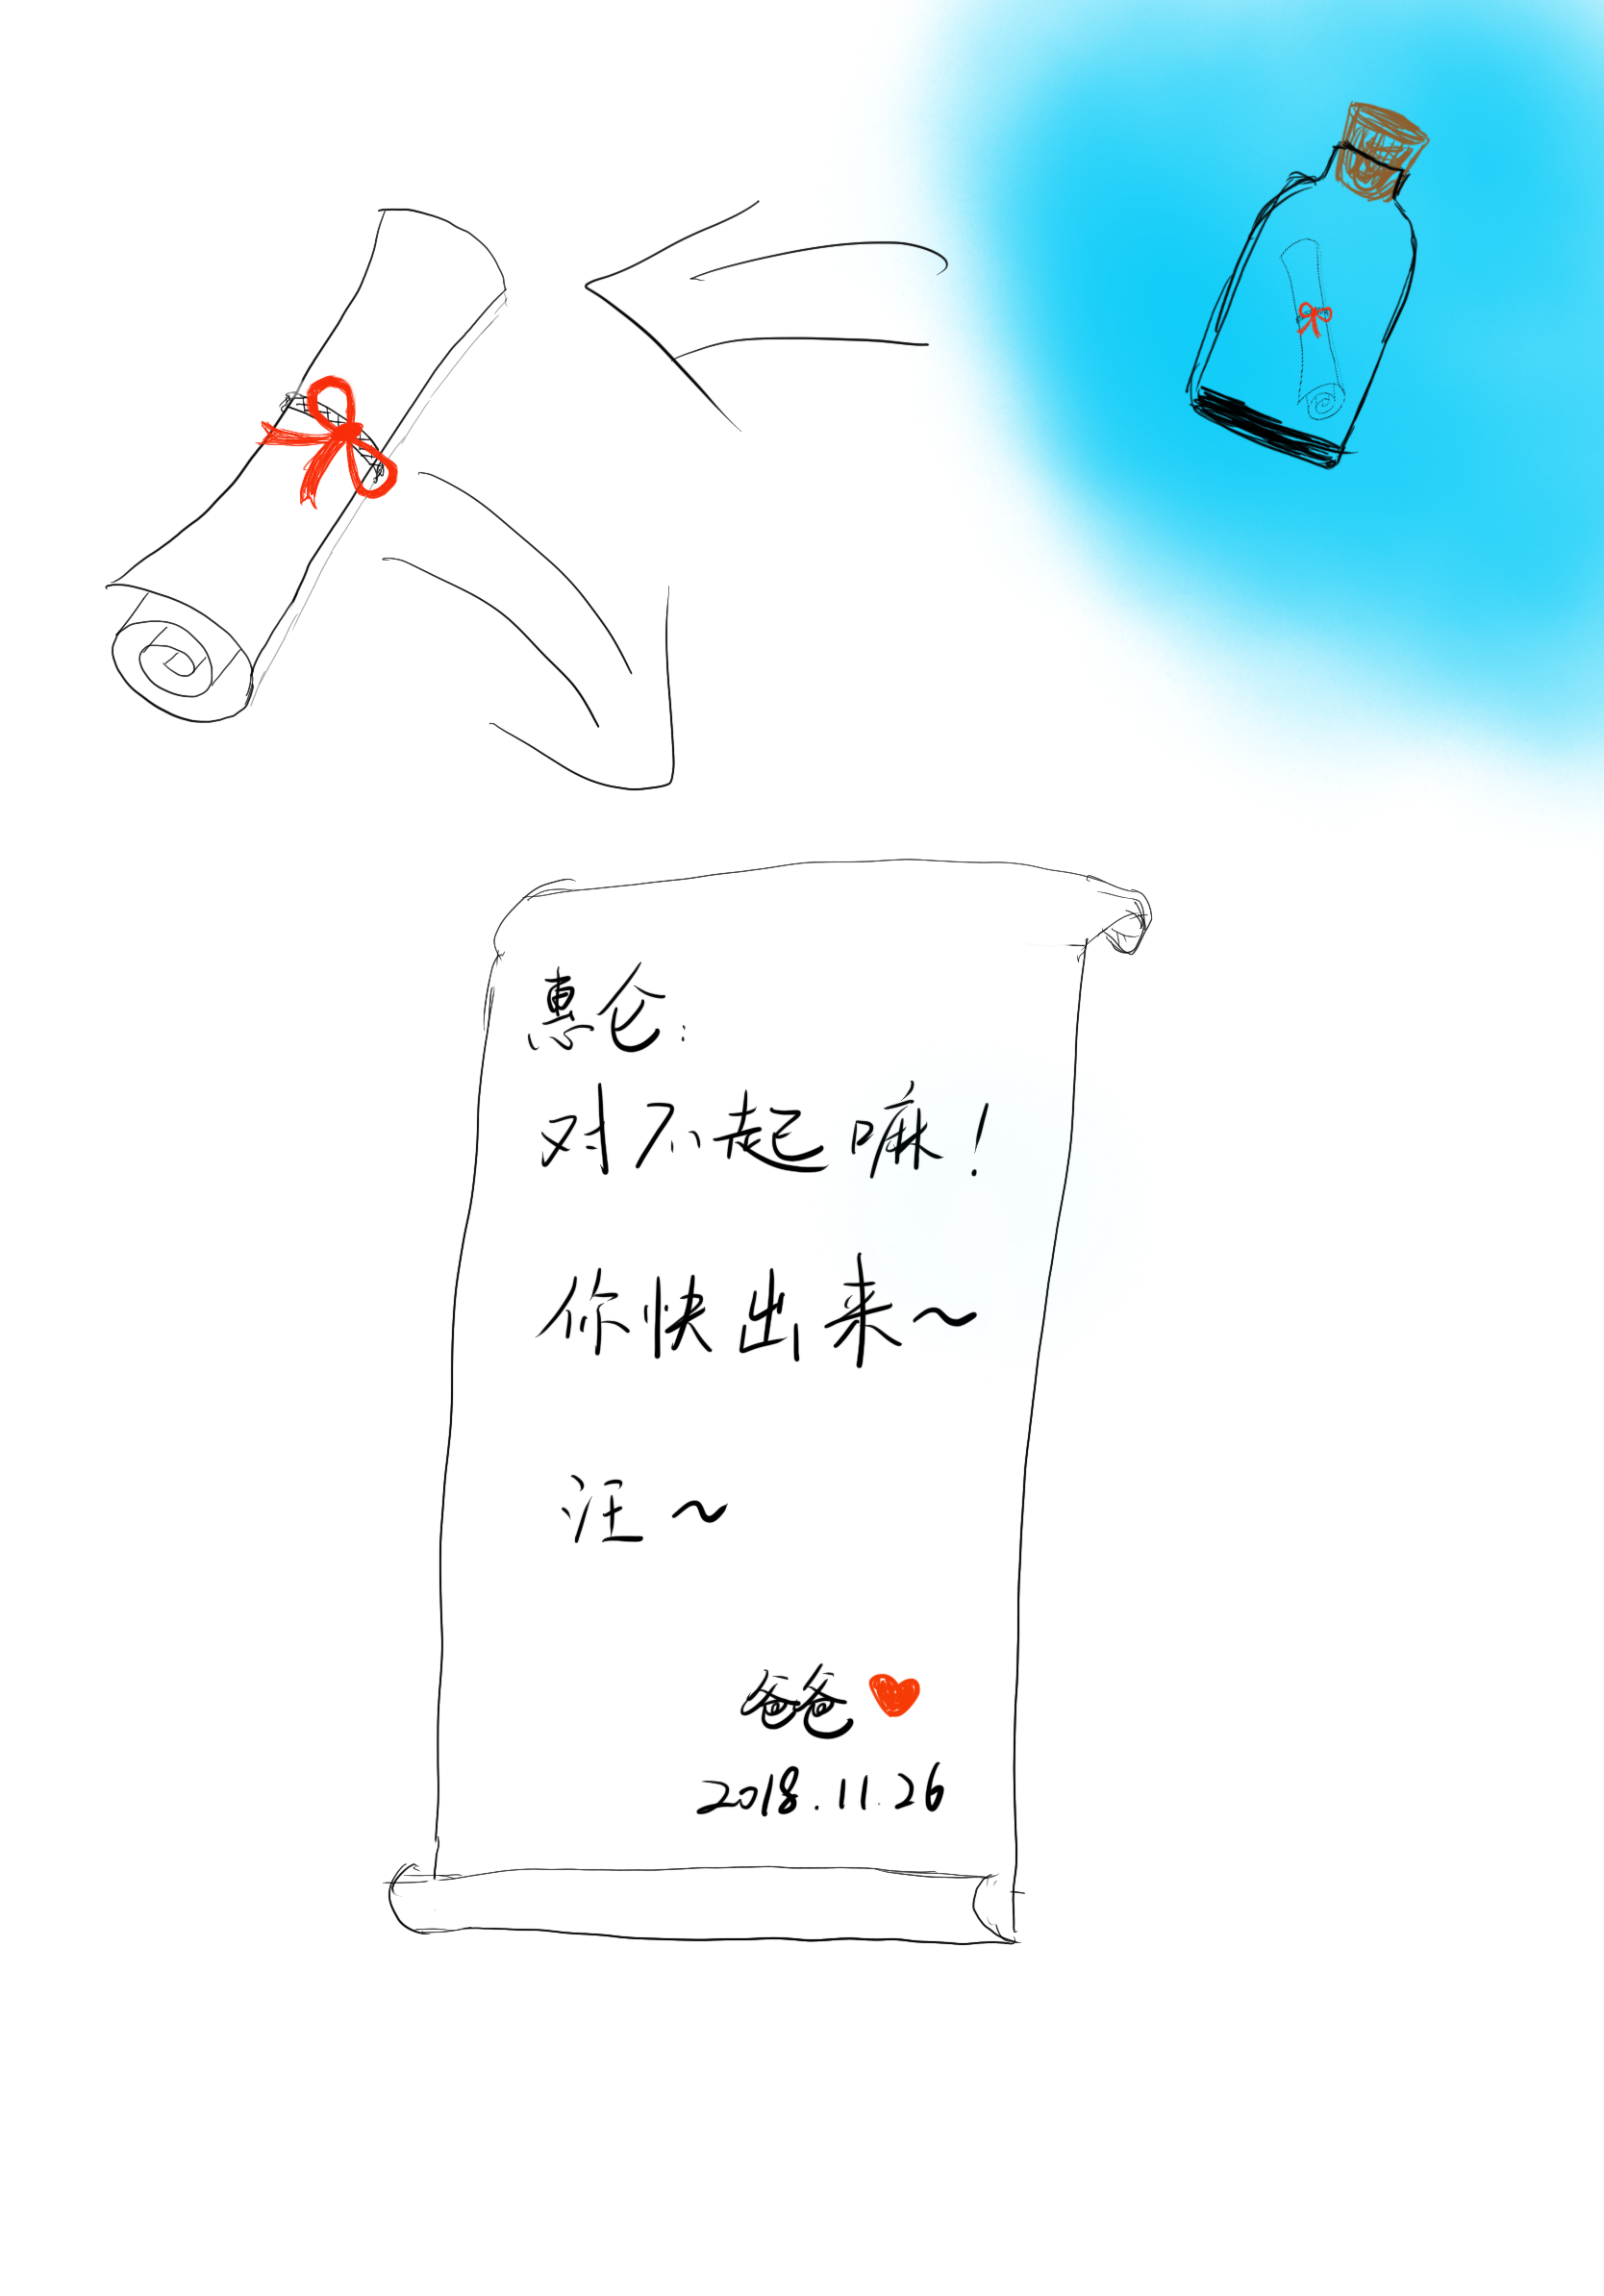 惠仑:
对不起嘛!
你快出来~
汪~
爸爸
2018.11.26